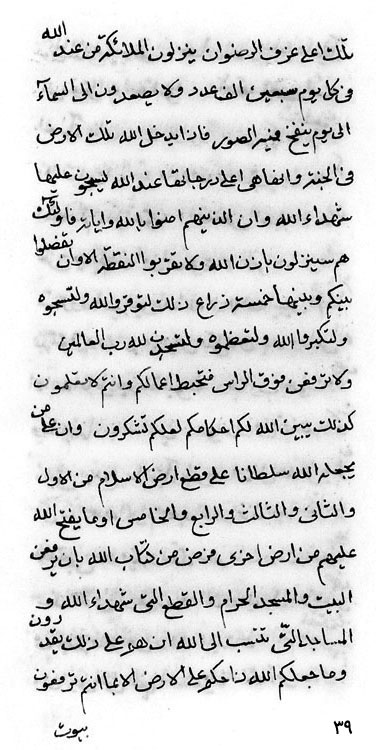 تلك اعلى غرف الرضوان ينزلون الملائكة من عند الله
فى كل يوم سبعين الف عدد ولا يصعدون الى السمآء
الى يوم ينفخ فيه الصور فاذا يدخل الله تلك الارض
فى الجنة وانها هى اعلى درجاتها عند الله ليسجون عليها
شهداء الله وان الذينهم امنوا بالله واياته فاولئك
هم سينزلون باذن الله ولا تقربوا النقطة الا وان يفضلوا
بينكم وبينها خمسة زراع ذلك لتوقروا الله ولتسبحوه
ولتكبروا الله ولتعظموه ولتسجدن لله رب العالمين
ولا ترفعن فوق الراس فتحبط اعمالكم وانتم لا تعلمون
كذلك يبين الله لكم احكامكم لعلكم تشكرون وان على من
يجعله الله سلطانا على قطع ارض الاسلام من الاول
والثانى والثالث والرابع والخامس او ما يفتح الله
عليهم من ارض اخرى فرض من كتاب الله بان يرفعن
البيت والمسجد الحرام والقطع التى شهداء الله و
المساجد التى تنسب الى الله ان هو على ذلك يقدرون
وما جعلكم الله حكم على الارض الا بما انتم ترفعون
٣٩ بيوت